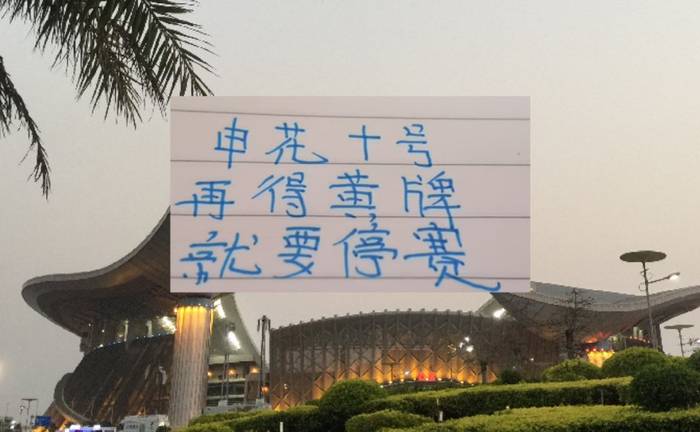 申花十号
再得黄牌
就要停赛